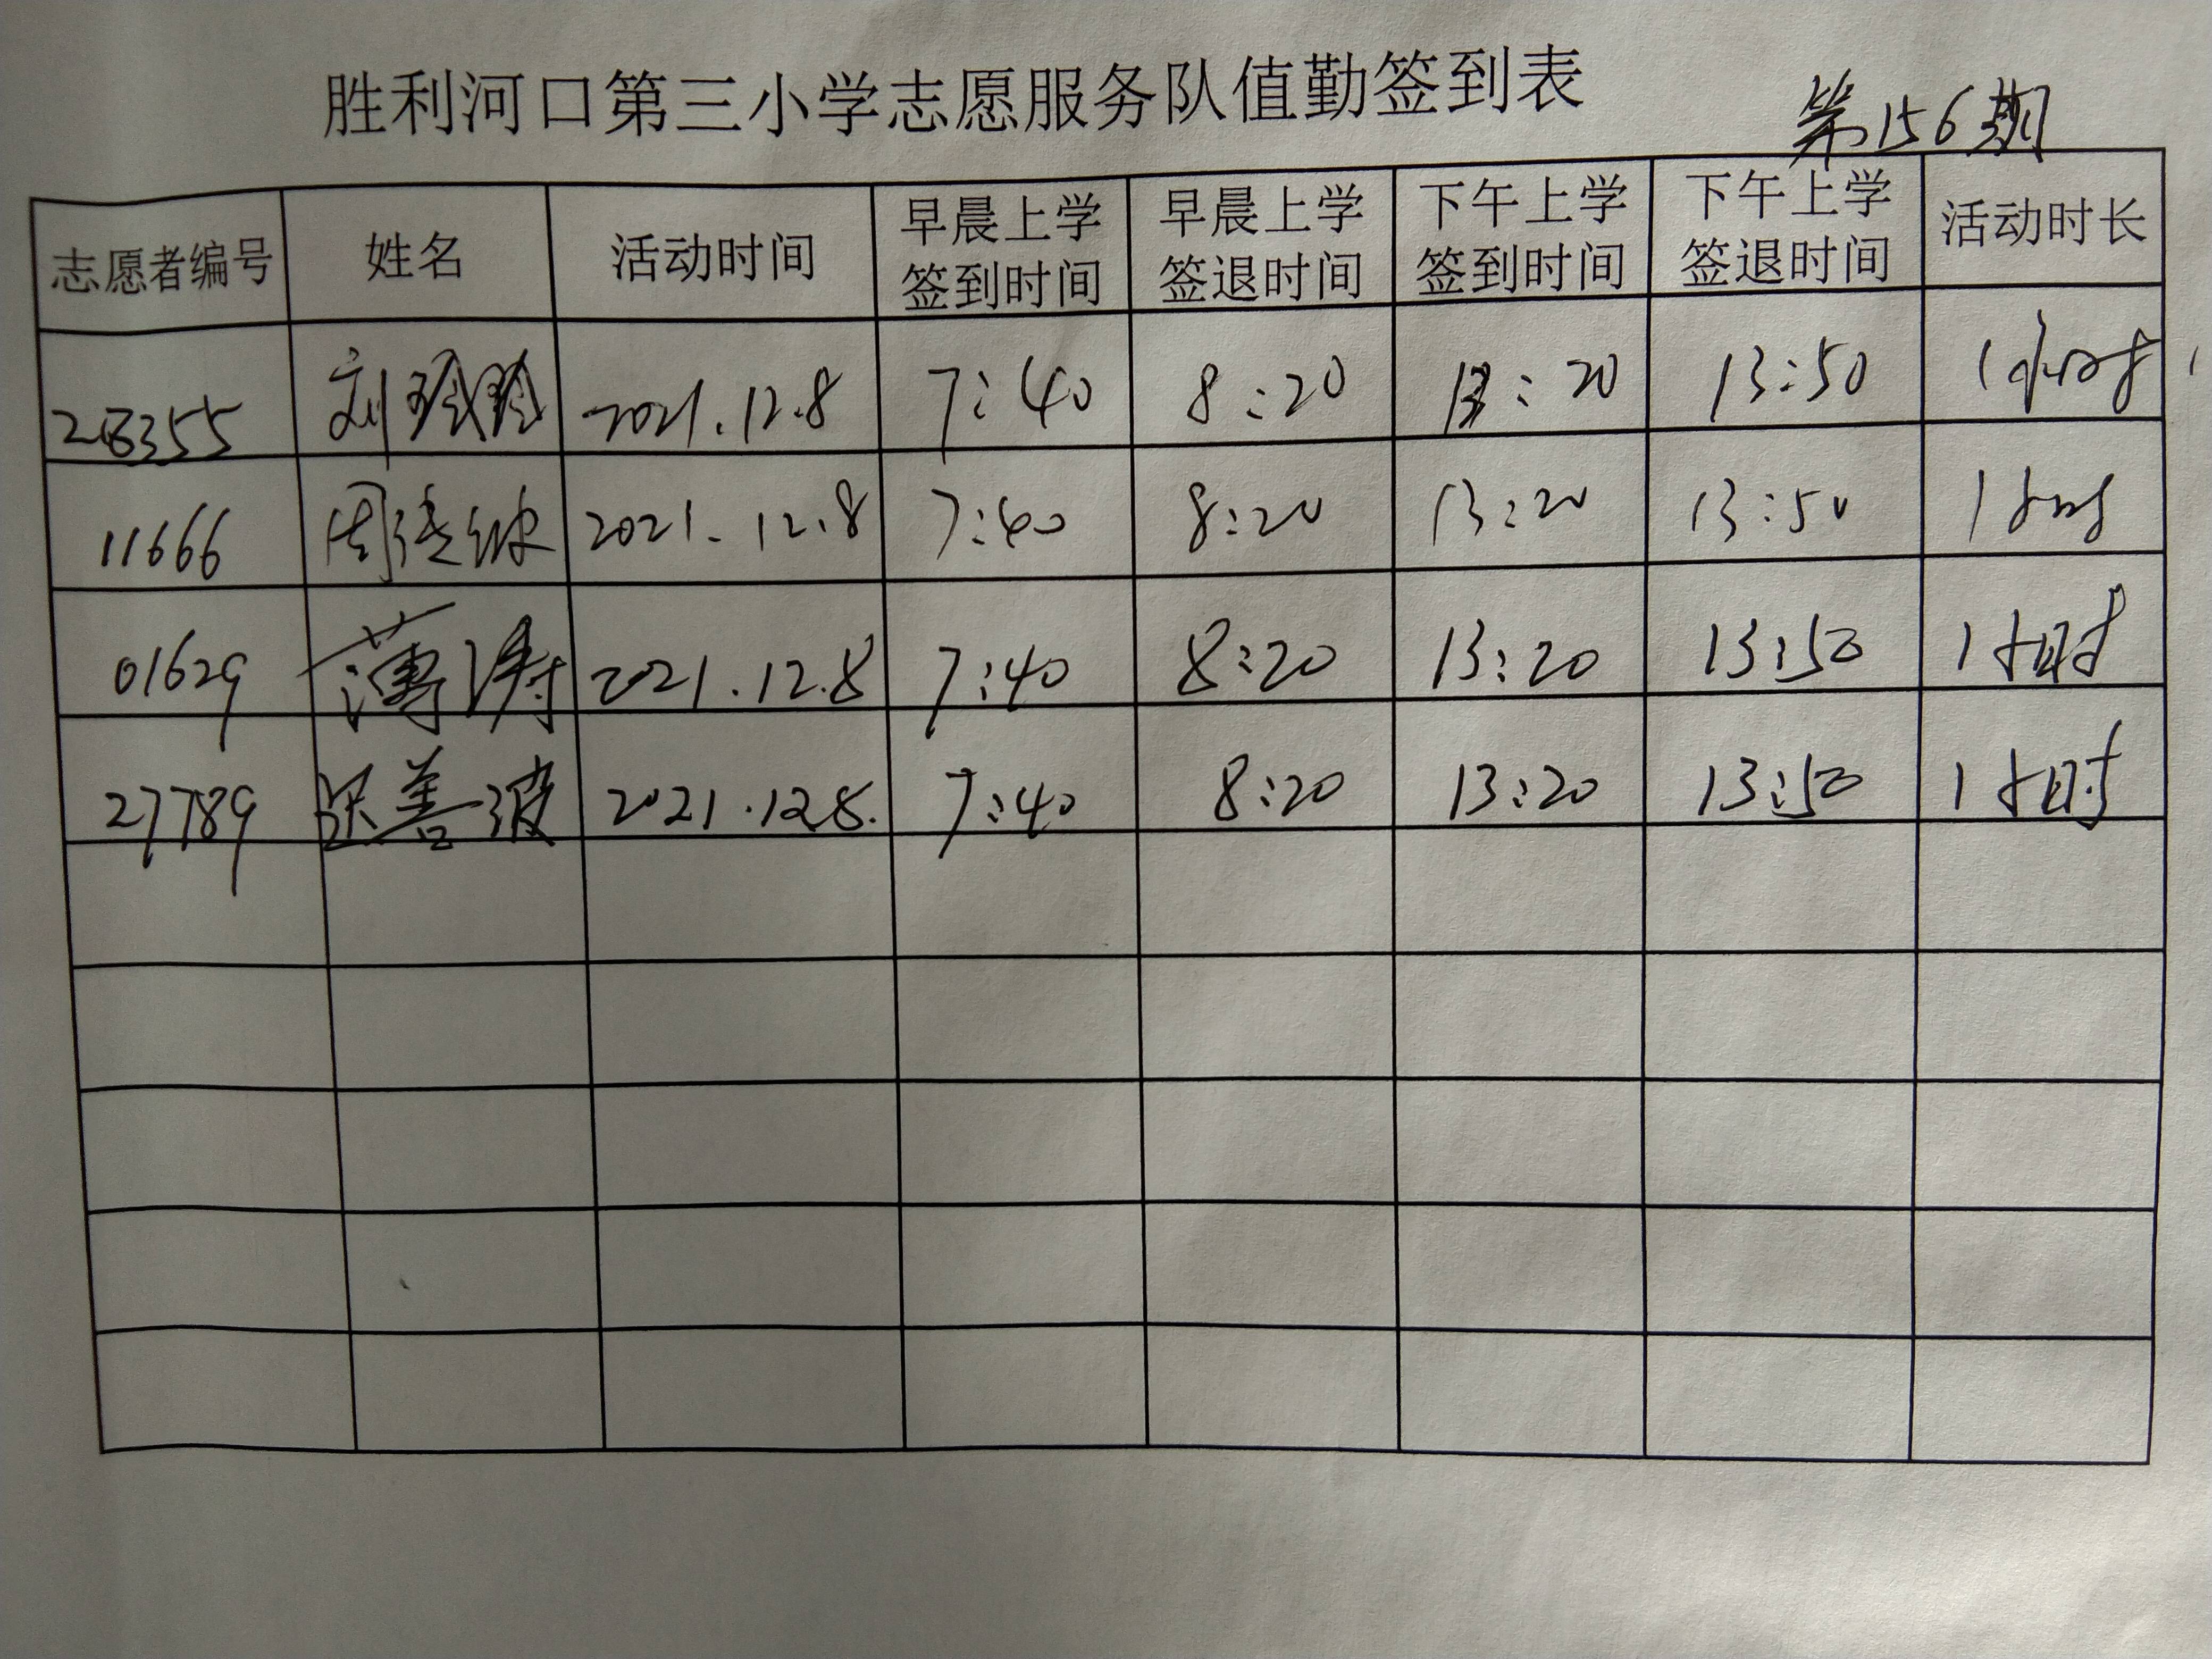 胜利河口第三小学志愿服务队值勤签到表
第156期
志愿者编号 姓名 活动时间 早晨上学签到时间 早晨上学签退时间 下午上学签到时间 下午上学签退时间 活动时长
刘玲玲 2021.12.8 7:40 8:20 13:20 13:50 1小时
11666 周 2021.12.8 7:40 8:20 13:20 13:50 1小时
01629 薄涛 2021.12.8 7:40 8:20 13:20 13:50 1小时
27789 善波 2021.12.8. 7:40 8:20 13:20 13:50 1小时